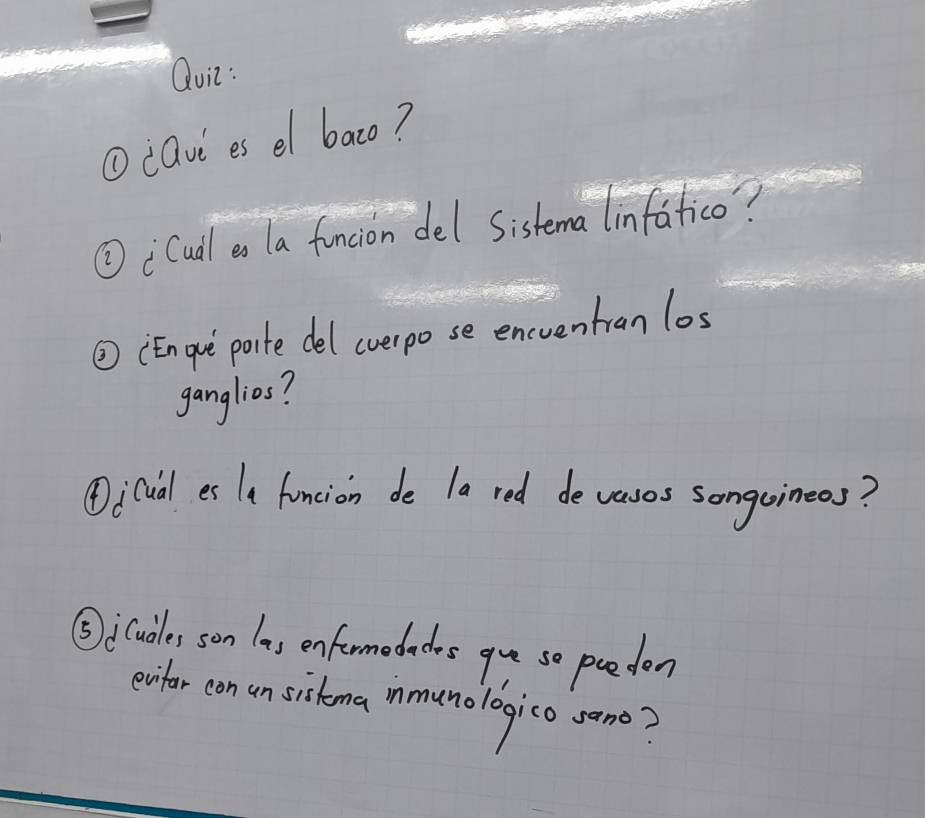 Quiz:
① ¿Qué es el bazo?
② ¿Cuál es la función del Sistema linfático?
③ ¿En qué parte del cuerpo se encuentran los
ganglios?
④ ¿Cuál es la función de la red de vasos sanguineos?
⑤ ¿Cuáles son las enfermedades que se pueden
evitar con un sistema inmunológico sano?